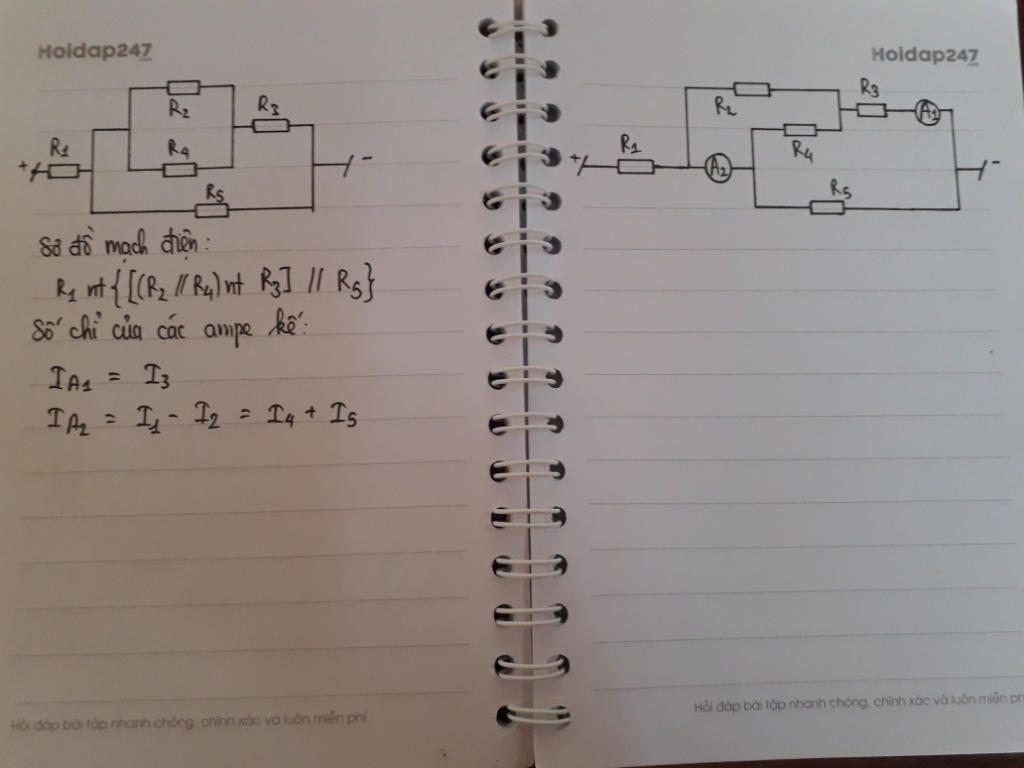 Hoidap247
R2
R3
R1
R4
+
-
R5
Sơ đồ mạch điện:
R1 nt {[(R2 // R4) nt R3] // R5}
Số chỉ của các ampe kế:
IA1 = I3
IA2 = I1 - I2 = I4 + I5
Hỏi đáp bài tập nhanh chóng, chính xác và luôn miễn phí
Hoidap247
R3
R2
A1
R1
R4
+
A2
-
R5
Hỏi đáp bài tập nhanh chóng, chính xác và luôn miễn ph